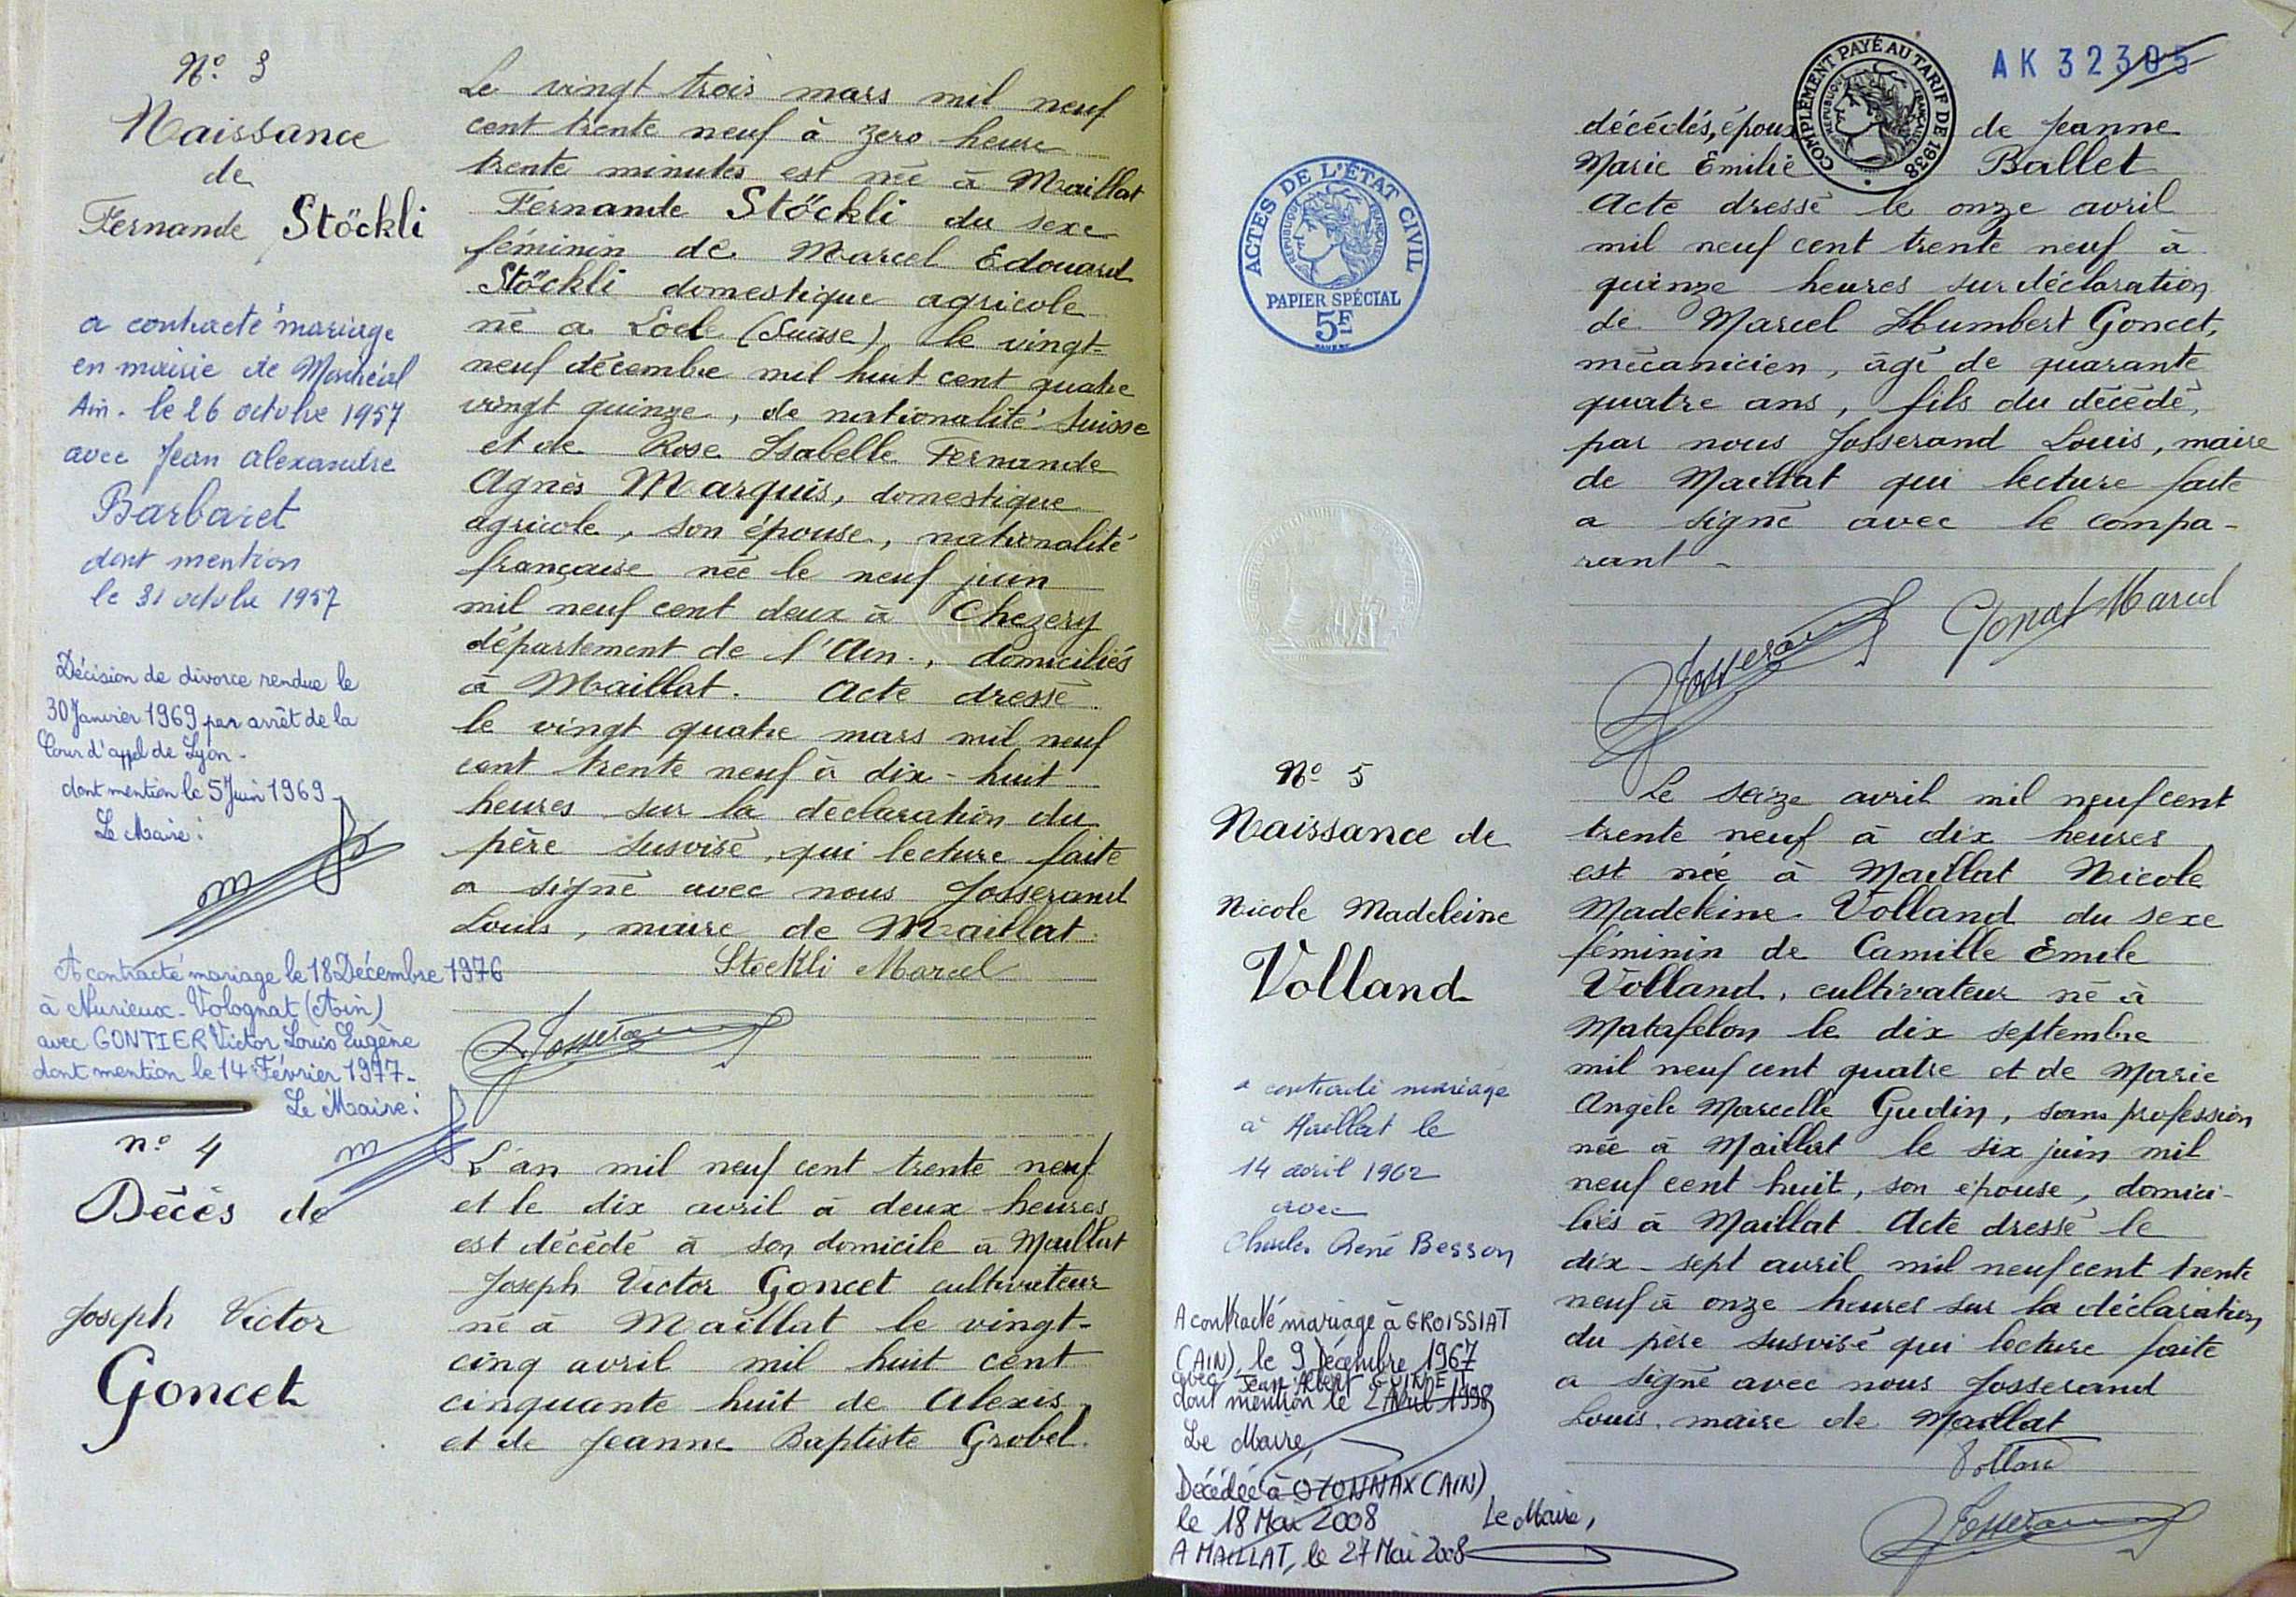 Nº 3
Naissance
de
Fernande Stöckli
a contracté mariage
en mairie de
Ain. le 26 octobre 1957
avec Jean Alexandre
Barbaret
dont mention
le 31 octobre 1957
Décision de divorce rendue le
30 Janvier 1969 par arrêt de la
Cour d'appel de Lyon-
dont mention le 5 Juin 1969
Le Maire:
A contracté mariage le 18 Décembre 1976
à Nurieux-Volognat (Ain)
avec GONTIER Victor Louis Eugène
dont mention le 14 Février 1977-
Le Maire:
Le vingt trois mars mil neuf
cent trente neuf à zero heure
trente minutes est née à Maillat
Fernande Stöckli du sexe
féminin de Marcel Edouard
Stöckli domestique agricole
né a Locle (Suisse), le vingt-
neuf décembre mil huit cent quatre
vingt quinze, de nationalité Suisse
et de Rose Isabelle Fernande
Agnès Marquis, domestique
agricole, son épouse, nationalité
française née le neuf juin
mil neuf cent deux à Chezery
département de l'Ain., domiciliés
à Maillat. Acte dressé
le vingt quatre mars mil neuf
cent trente neuf à dix-huit
heures sur la déclaration du
père susvisé, qui lecture faite
a signé avec nous Josserand
Louis, maire de Maillat.
Stöckli Marcel
Josserand
nº 4
Décès de
Joseph Victor
Goncet
L'an mil neuf cent trente neuf
et le dix avril à deux heures
est décédé à son domicile à Maillat
Joseph Victor Goncet cultivateur
né à Maillat le vingt-
cinq avril mil huit cent
cinquante huit de Alexis
et de Jeanne Baptiste Grobel.
AK 32305
COMPLÉMENT PAYÉ AU TARIF DE 1938
RÉPUBLIQUE FRANÇAISE
ACTES DE L'ÉTAT CIVIL
RÉPUBLIQUE FRANÇAISE
PAPIER SPÉCIAL
5F
décédés, époux de Jeanne
Marie Emilie Ballet
Acte dressé le onze avril
mil neuf cent trente neuf à
quinze heures sur déclaration
de Marcel Humbert Goncet,
mécanicien, âgé de quarante
quatre ans, fils du décédé,
par nous Josserand Louis, maire
de Maillat qui lecture faite
a signé avec le compa-
rant -
Goncet Marcel
Josserand
Nº 5
Naissance de
Nicole Madeleine
Volland
a contracté mariage
à Maillat le
14 avril 1962
avec
Charles René Besson
A contracté mariage à GROISSIAT
(AIN), le 9 Décembre 1967
avec Jean Albert GUINET
dont mention le 2 Avril 1998
Le Maire,
Décédée à OYONNAX (AIN)
le 18 Mai 2008
Le Maire,
A MAILLAT, le 27 Mai 2008
Le seize avril mil neuf cent
trente neuf à dix heures
est née à Maillat Nicole
Madeleine Volland du sexe
féminin de Camille Emile
Volland, cultivateur né à
Matafelon le dix septembre
mil neuf cent quatre et de Marie
Angèle Marcelle Gudin, sans profession
née à Maillat le six juin mil
neuf cent huit, son épouse, domici-
liés à Maillat. Acte dressé le
dix-sept avril mil neuf cent trente
neuf à onze heures sur la déclaration
du père susvisé qui lecture faite
a signé avec nous Josserand
Louis, maire de Maillat
Volland
Josserand